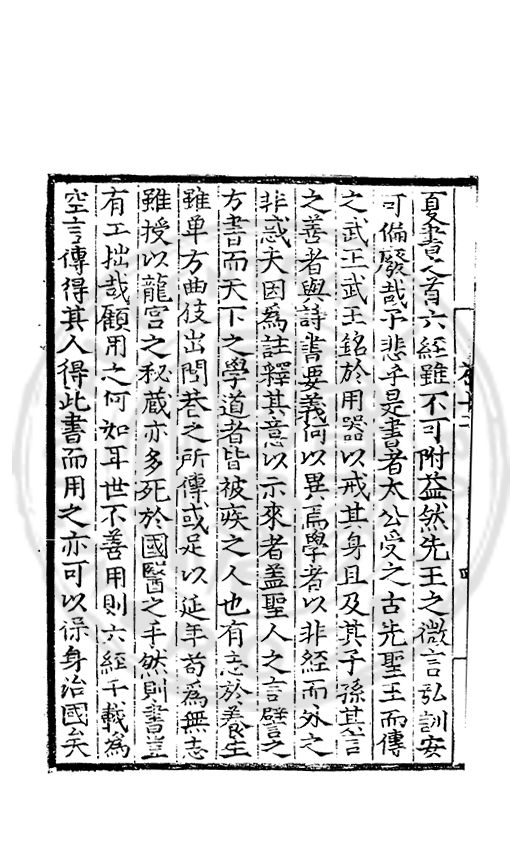 夏書之首六經雖不可附益然先王之微言弘訓安
可偏廢哉予悲乎是書者太公受之古先聖王而傳
之武王武王銘於用器以戒其身且及其子孫其言
之善者與詩書要義何以異焉學者以非經而外之
非惑夫因為註釋其意以示來者盖聖人之言譬之
方書而天下之學道者皆被疾之人也有志於養生
雖单方曲伎出閭巷之所傳或足以延年苟為無志
雖授以龍宫之秘蔵亦多死於國醫之手然則書豈
有工拙哉顧用之何如耳世不善用則六經千載為
空言傳得其人得此書而用之亦可以保身治國矣